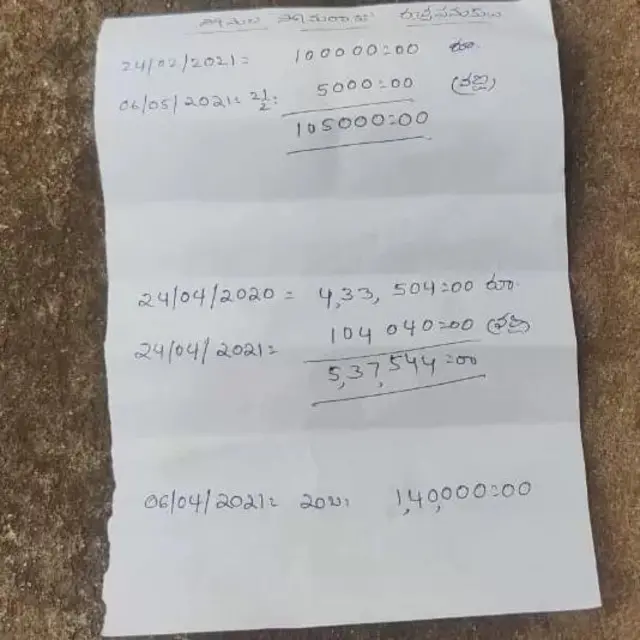 24/02/2021= 100000=00 రూ.
06/05/2021= 2½: 5000=00 (వడ్డి)
105000=00
24/04/2020 = 4,33,504=00 రూ.
24/04/2021= 104040=00 (వడ్డి)
5,37,544=00
06/04/2021= 1,40,000=00